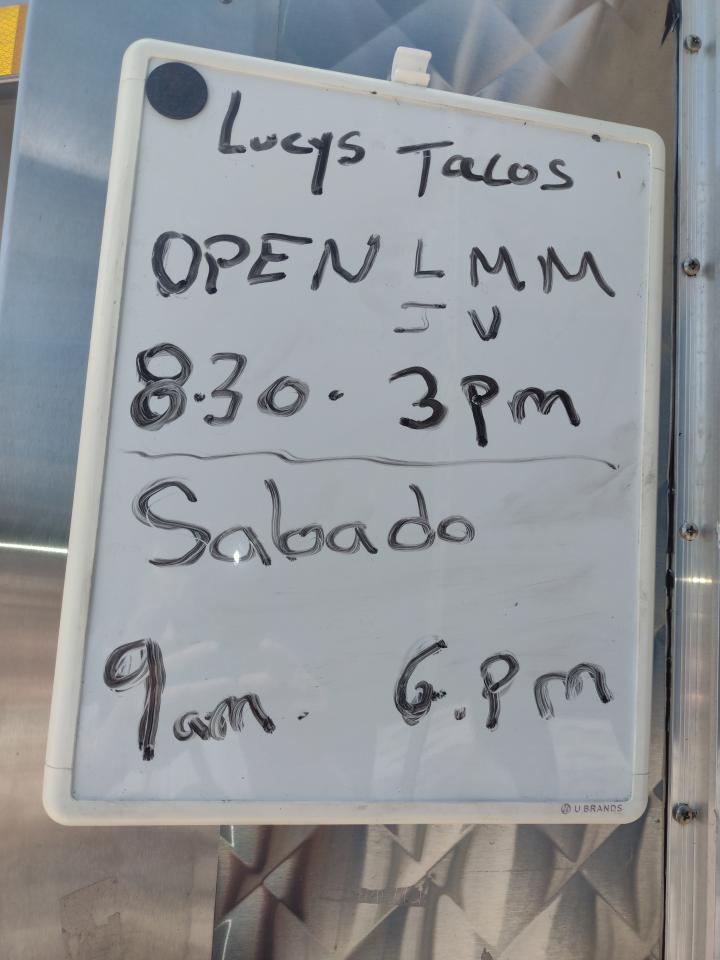 Lucys Tacos
OPEN L M M
J V
8.30. 3pm
Sabado
9am. 6.pm
U BRANDS